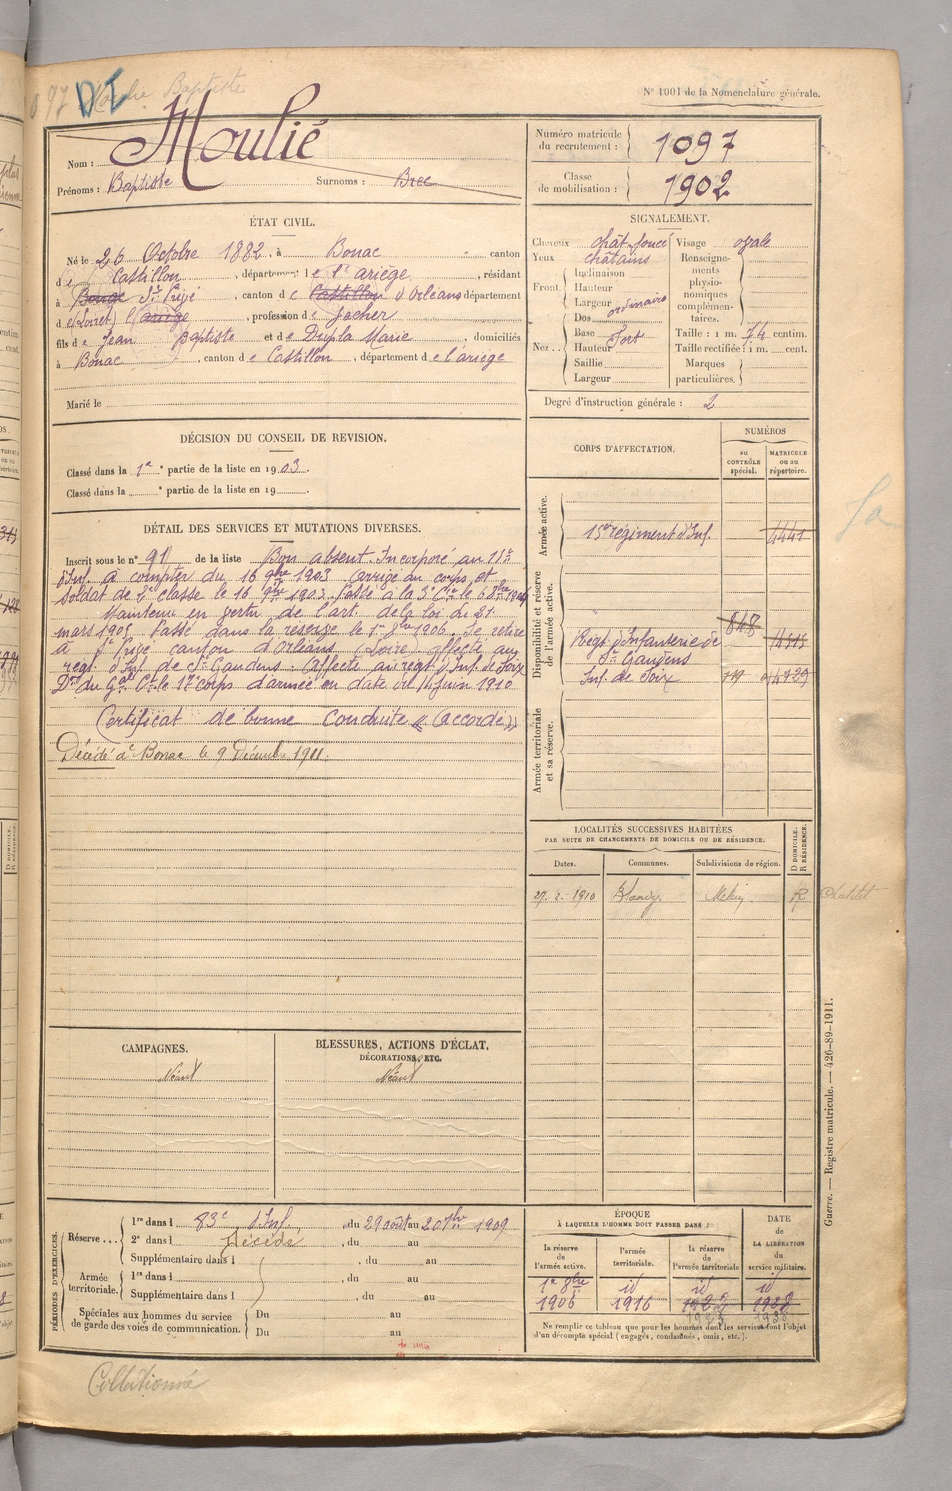 1097 DI Moulié Baptiste
N° 1001 de la Nomenclature générale.
Nom : Moulié
Prénoms : Baptiste Surnoms : Brec
Numéro matricule du recrutement : 1097
Classe de mobilisation : 1902
ÉTAT CIVIL.
Né le 26 Octobre 1882, à Bonac canton
de Castillon, département de l'ariège, résidant
à St Privé, canton d'Orléans département
d (Loiret) l'ariège, profession de
fils de Jean Baptiste et de Dupla Marie, domiciliés
à Bonac, canton de Castillon, département de l'ariège
Marié le
SIGNALEMENT.
Cheveux chât. foncé Visage ovale
Yeux châtains
Front. Inclinaison
Hauteur
Largeur ordinaire
Nez. Dos
Base
Hauteur fort
Saillie
Largeur
Renseignements physionomiques complémentaires.
Taille : 1 m. 74 centim.
Taille rectifiée : 1 m. cent.
Marques particulières.
Degré d'instruction générale : 2
DÉCISION DU CONSEIL DE REVISION.
Classé dans la 1re partie de la liste en 1903.
Classé dans la e partie de la liste en 19
CORPS D'AFFECTATION.
NUMÉROS
au CONTRÔLE spécial.
MATRICULE ou au répertoire.
Armée active.
15e régiment d'Inf. 4441
Disponibilité et réserve de l'armée active.
848
Régt d'Infanterie de St Gaudens
Inf. de Foix
Armée territoriale et sa réserve.
DÉTAIL DES SERVICES ET MUTATIONS DIVERSES.
Inscrit sous le n° 91 de la liste Bon absent. Incorporé au 15e
d'Inf. à compter du 16 9bre 1903 arrivé au corps et
soldat de 2e classe le 16 9bre 1903. Passé à la 3e Cie le 6 8bre 1904
Maintenu en vertu de l'art. de la loi du 21
mars 1905. Passé dans la réserve le 1er 8bre 1906. Se retire
à St Privé canton d'Orléans (Loire) affecté au
régt d'Inf. de St Gaudens. Affecté au régt d'Inf. de Foix
Don du Gal Ct le 17e corps d'armée en date du 14 Juin 1910
Certificat de bonne conduite « (accordé) »
Décédé à Bonac le 9 Décembre 1911.
LOCALITÉS SUCCESSIVES HABITÉES
PAR SUITE DE CHANGEMENTS DE DOMICILE OU DE RÉSIDENCE.
Dates. Communes. Subdivisions de région. D DOMICILE. R RÉSIDENCE.
27. 2. 1910 Blandy Melun R Chatelet
CAMPAGNES.
Néant
BLESSURES, ACTIONS D'ÉCLAT, DÉCORATIONS, ETC.
Néant
PÉRIODES D'EXERCICES.
Réserve... 1re dans l 83e d'Inf., du 29 août au 20 7bre 1909
2e dans l Décédé, du au
Supplémentaire dans l, du au
Armée territoriale. 1re dans l, du au
Supplémentaire dans l, du au
Spéciales aux hommes du service de garde des voies de communication. Du au
Du au
ÉPOQUE
À LAQUELLE L'HOMME DOIT PASSER DANS :
la réserve de l'armée active. l'armée territoriale. la réserve de l'armée territoriale
DATE de LA LIBÉRATION du service militaire.
1er 8bre id id id
1906 1916 1922 1928
Ne remplir ce tableau que pour les hommes dont les services font l'objet
d'un décompte spécial (engagés, condamnés, omis, etc.).
Guerre. — Registre matricule. — 426-89-1911.
Collationné